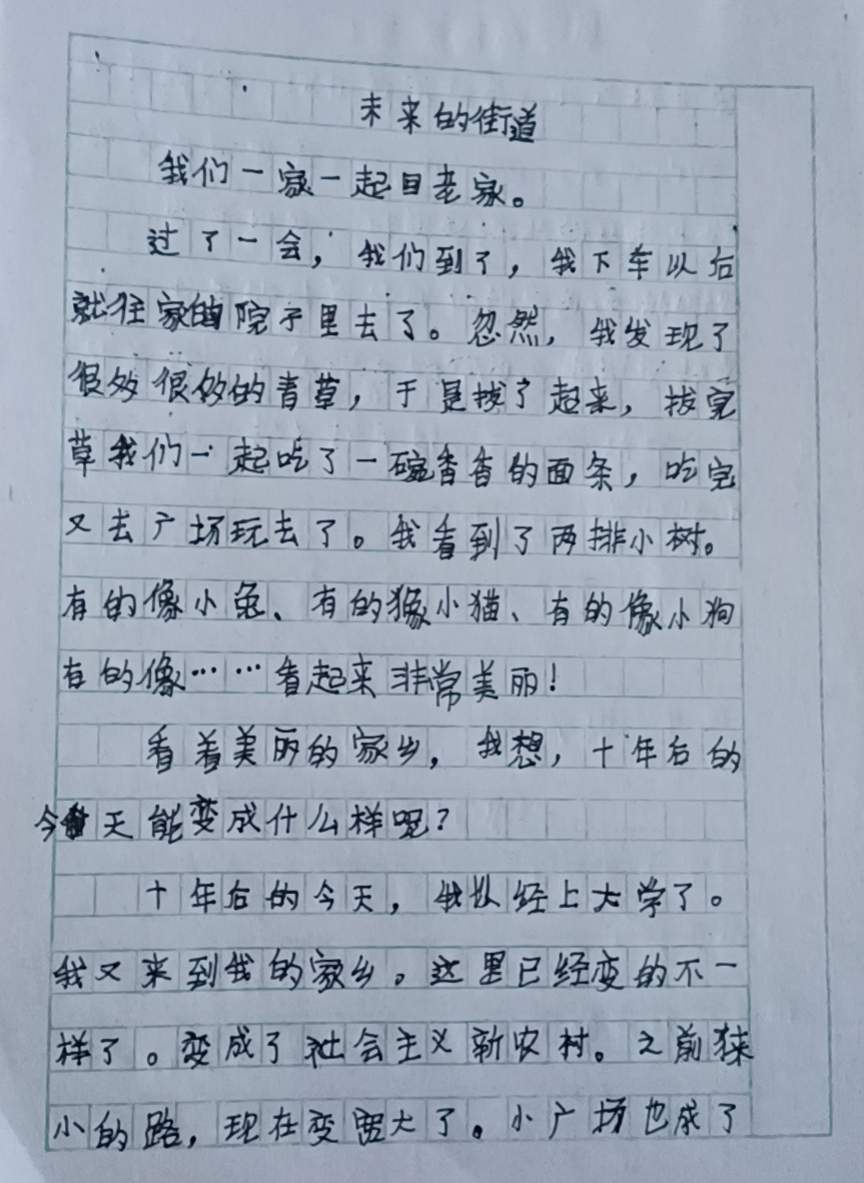 未来的街道
我们一家一起目老家。
过了一会，我们到了，我下车以后
就往家的院子里去了。忽然，我发现了
很多很多的青草，于是拔了起来，拔完
草我们一起吃了一碗香香的面条，吃完
又去广场玩去了。我看到了两排小树。
有的像小兔、有的像小猫、有的像小狗
有的像……看起来非常美丽！
看着美丽的家乡，我想，十年后的
今天能变成什么样呢？
十年后的今天，我以经上大学了。
我又来到我的家乡。这里已经变的不一
样了。变成了社会主义新农村。之前狭
小的路，现在变宽大了。小广场也成了